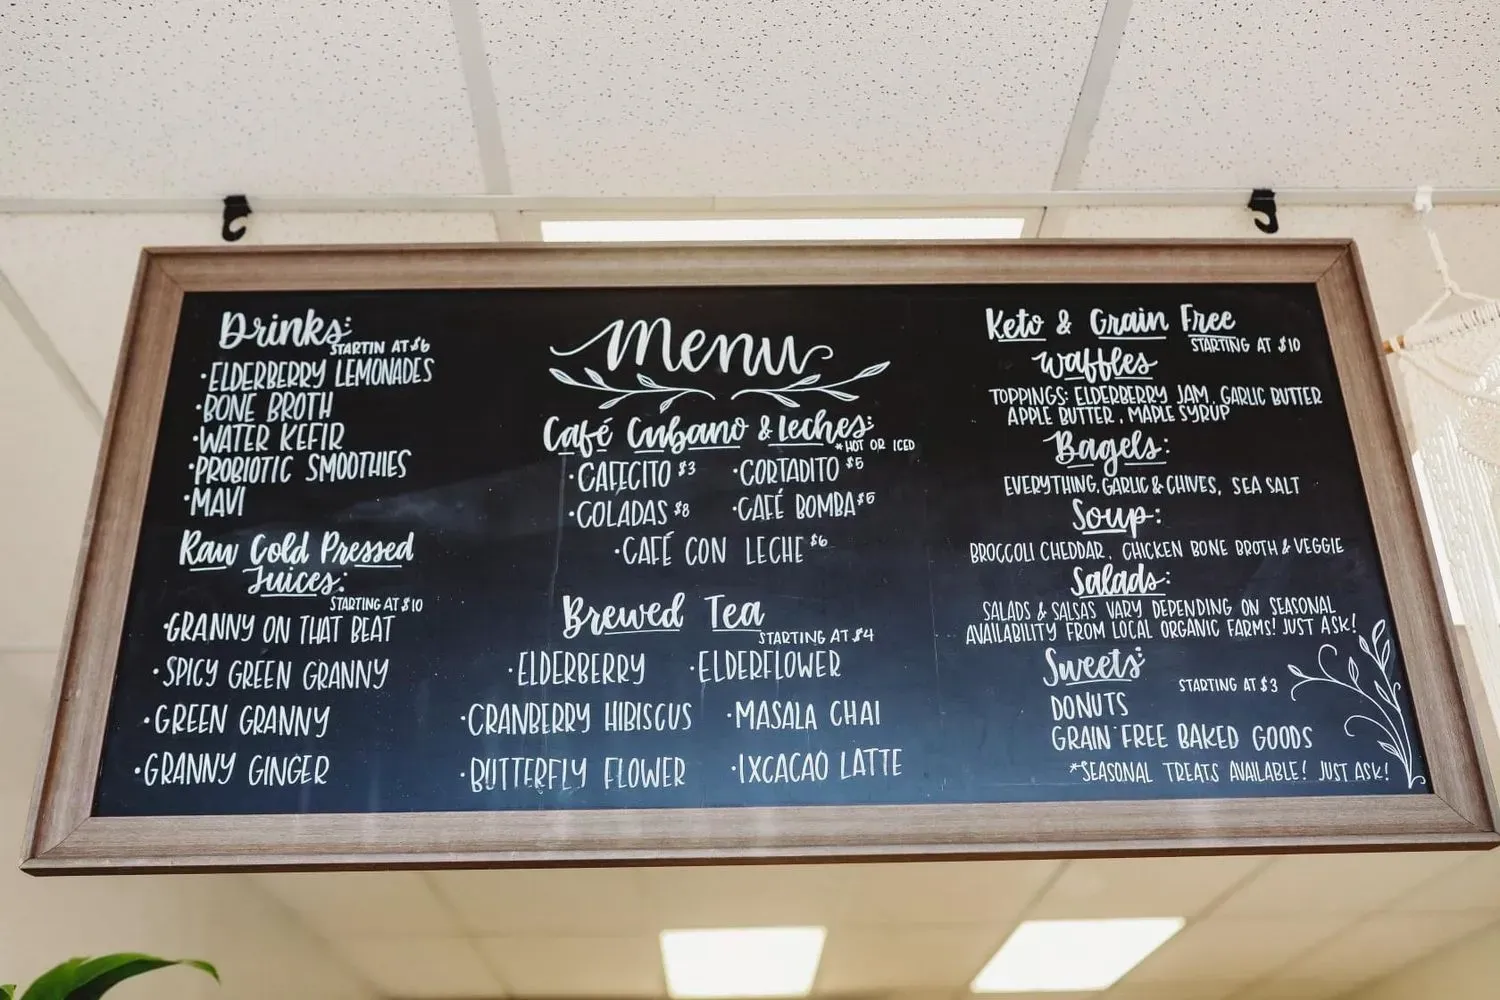 Drinks:
STARTIN AT $6
·ELDERBERRY LEMONADES
·BONE BROTH
·WATER KEFIR
·PROBIOTIC SMOOTHIES
·MAVI
Raw Cold Pressed
Juices:
STARTING AT $10
·GRANNY ON THAT BEAT
·SPICY GREEN GRANNY
·GREEN GRANNY
·GRANNY GINGER
Menu
Café Cubano & Leches:
*HOT OR ICED
·CAFECITO $3 ·CORTADITO $5
·COLADAS $8 ·CAFÉ BOMBA $5
·CAFÉ CON LECHE $6
Brewed Tea
STARTING AT $4
·ELDERBERRY ·ELDERFLOWER
·CRANBERRY HIBISCUS ·MASALA CHAI
·BUTTERFLY FLOWER ·IXCACAO LATTE
Keto & Grain Free
STARTING AT $10
Waffles
TOPPINGS: ELDERBERRY JAM, GARLIC BUTTER
APPLE BUTTER, MAPLE SYRUP
Bagels:
EVERYTHING, GARLIC & CHIVES, SEA SALT
Soup:
BROCCOLI CHEDDAR, CHICKEN BONE BROTH & VEGGIE
Salads:
SALADS & SALSAS VARY DEPENDING ON SEASONAL
AVAILABILITY FROM LOCAL ORGANIC FARMS! JUST ASK!
Sweets:
STARTING AT $3
DONUTS
GRAIN FREE BAKED GOODS
*SEASONAL TREATS AVAILABLE! JUST ASK!